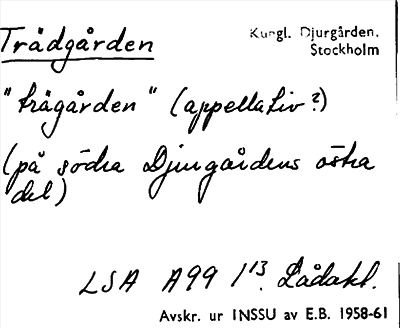 Trädgården
Kungl. Djurgården.
Stockholm
"trägården" (appellativ?)
(på södra Djurgårdens östra
del)
LSA A99 1'13. Lådakt.
Avskr. ur INSSU av E.B. 1958-61